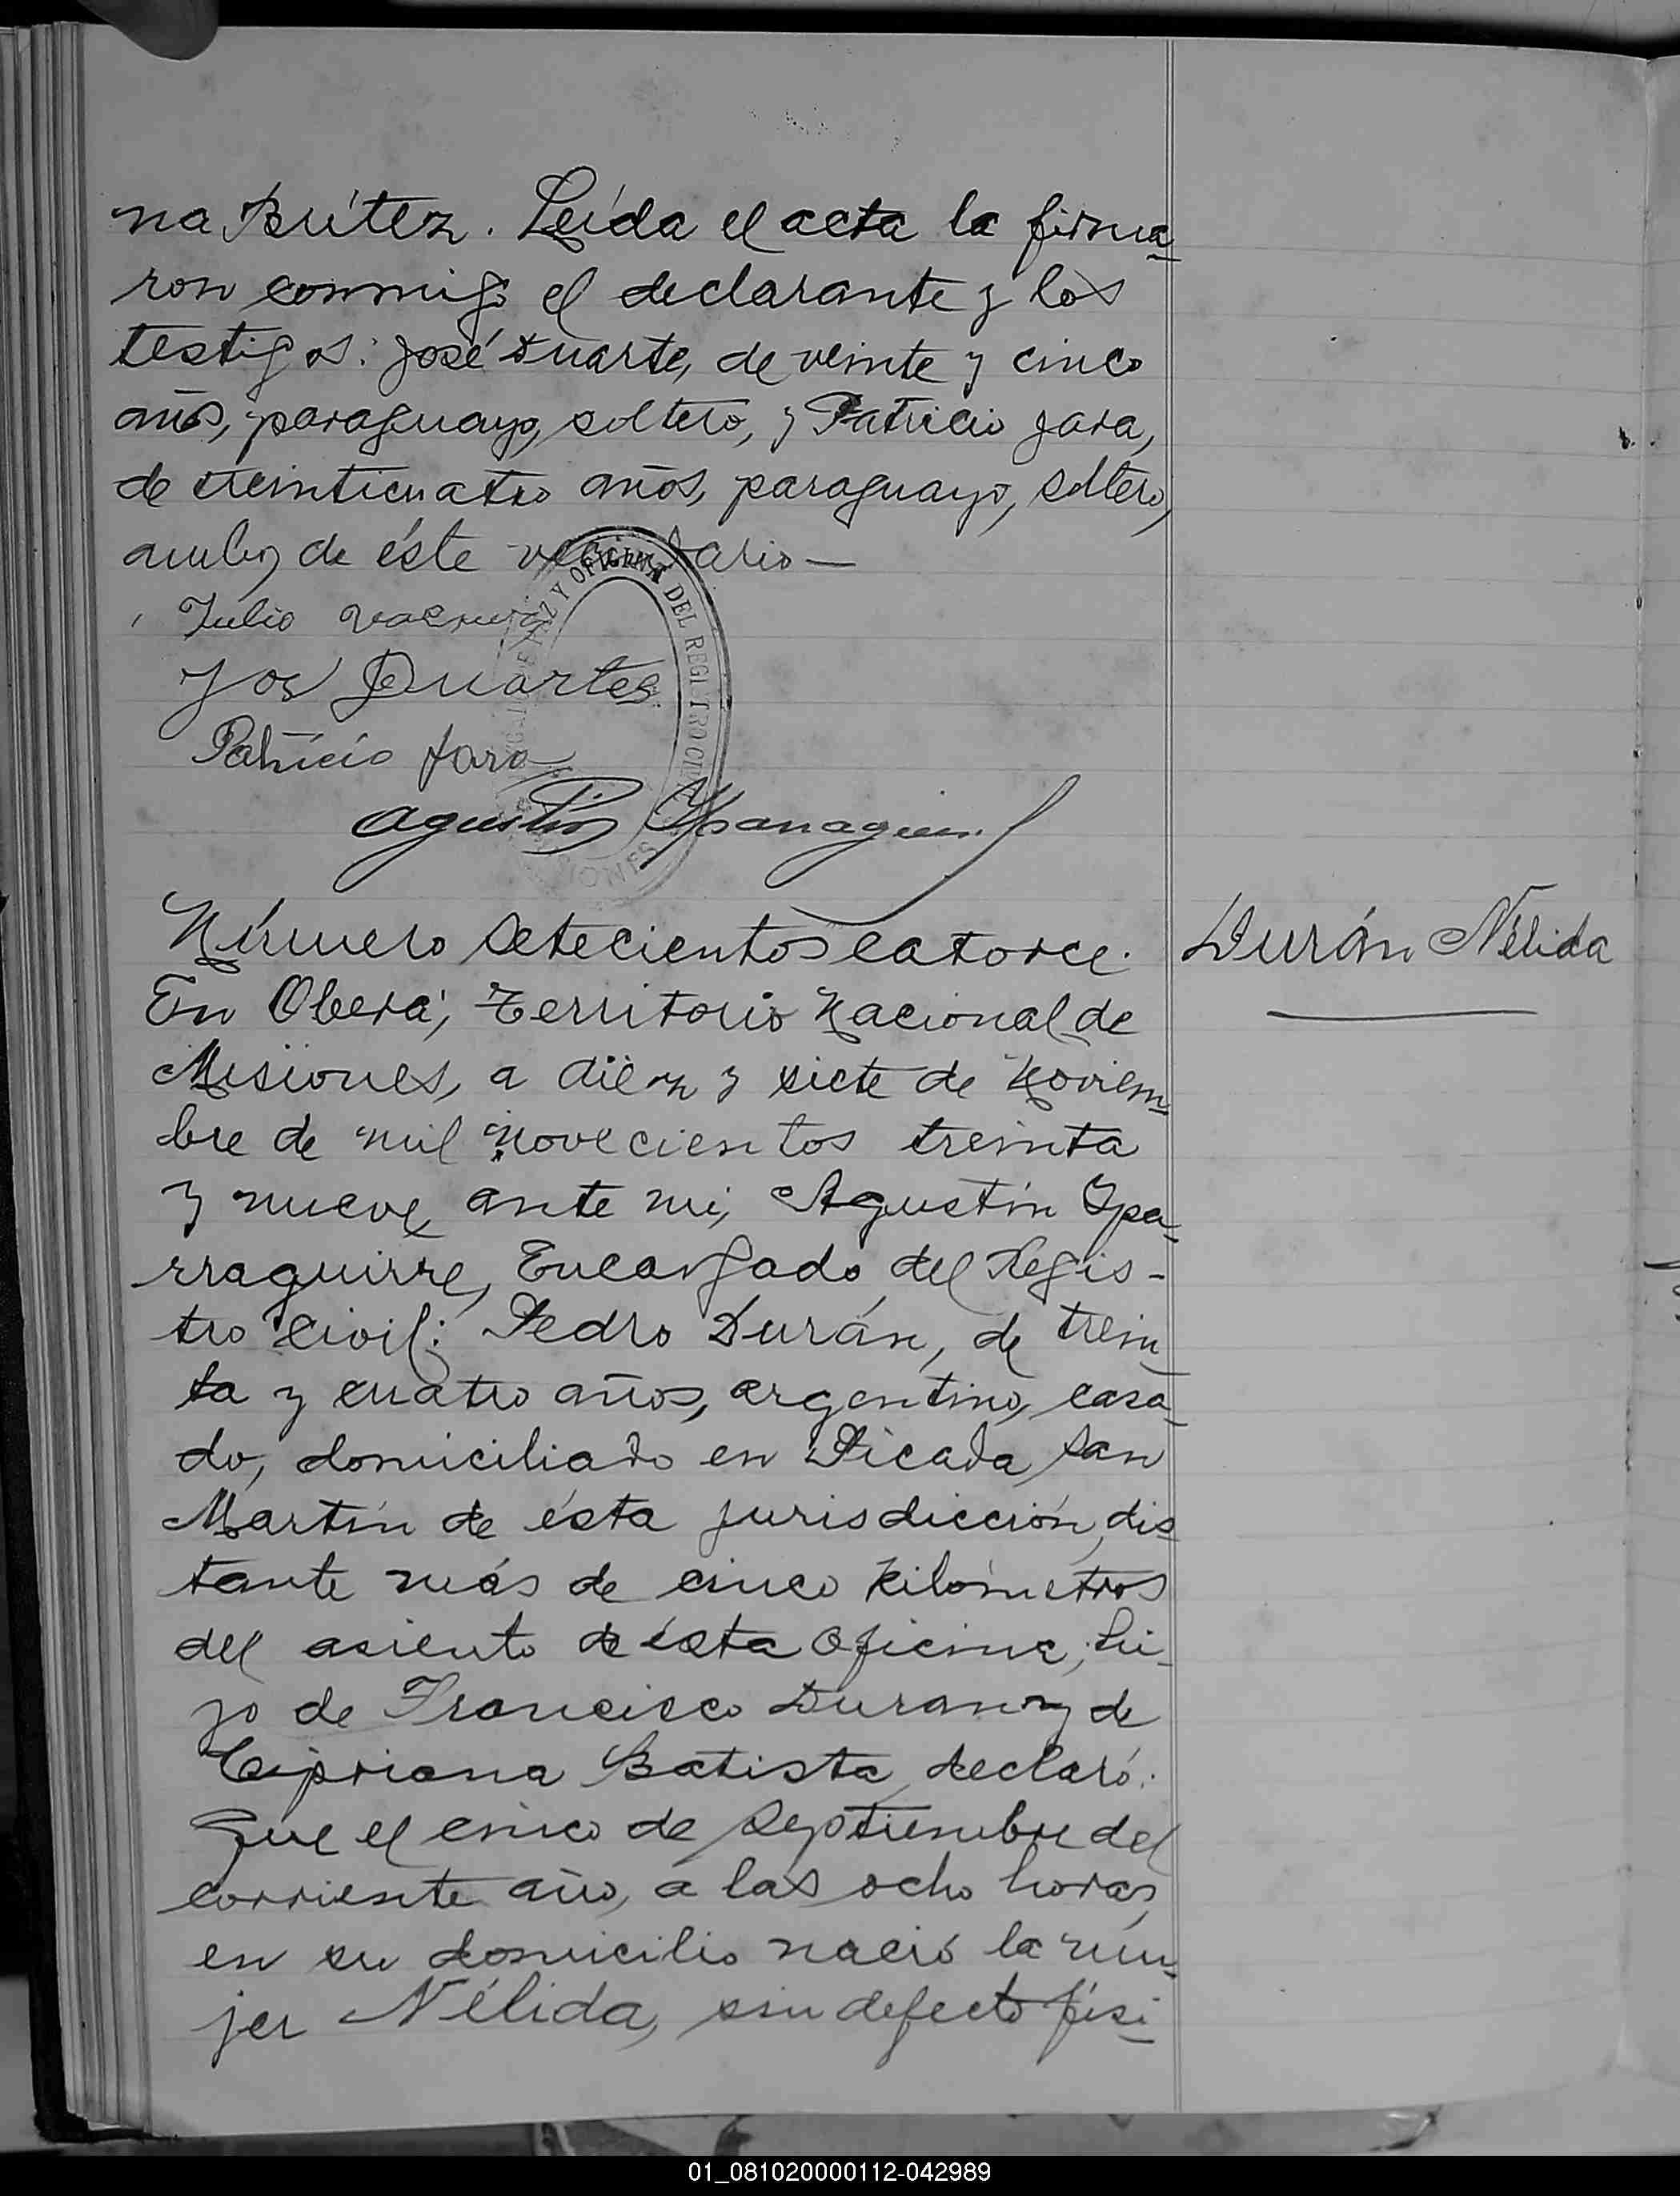 na Brítez. Leída el acta la firma-
ron conmigo el declarante y los
testigos: José Duarte, de veinte y cinco
años, paraguayo, soltero, y Patricio Jara,
de treinticuatro años, paraguayo, soltero,
ambos de éste vecindario—
Julio
Jos Duartes
Patricio Jara
Agustin Yparraguirre
OFICINA DEL REGISTRO CIVIL
MISIONES
Número setecientos catorce.
Durán Nélida
En Oberá, Territorio Nacional de
Misiones, a diez y siete de Noviem-
bre de mil novecientos treinta
y nueve, ante mi, Agustín Ypa-
rraguirre, Encargado del Regis-
tro Civil: Pedro Durán, de trein-
ta y cuatro años, argentino, casa-
do, domiciliado en Picada San
Martín de ésta jurisdicción, dis-
tante más de cinco kilómetros
del asiento de ésta Oficina, hi-
jo de Francisco Duran y de
Cipriana Batista, declaró:
Que el cinco de Septiembre del
corriente año, a las ocho horas,
en su domicilio nació la mu-
jer Nélida, sin defecto físi-
01_081020000112-042989